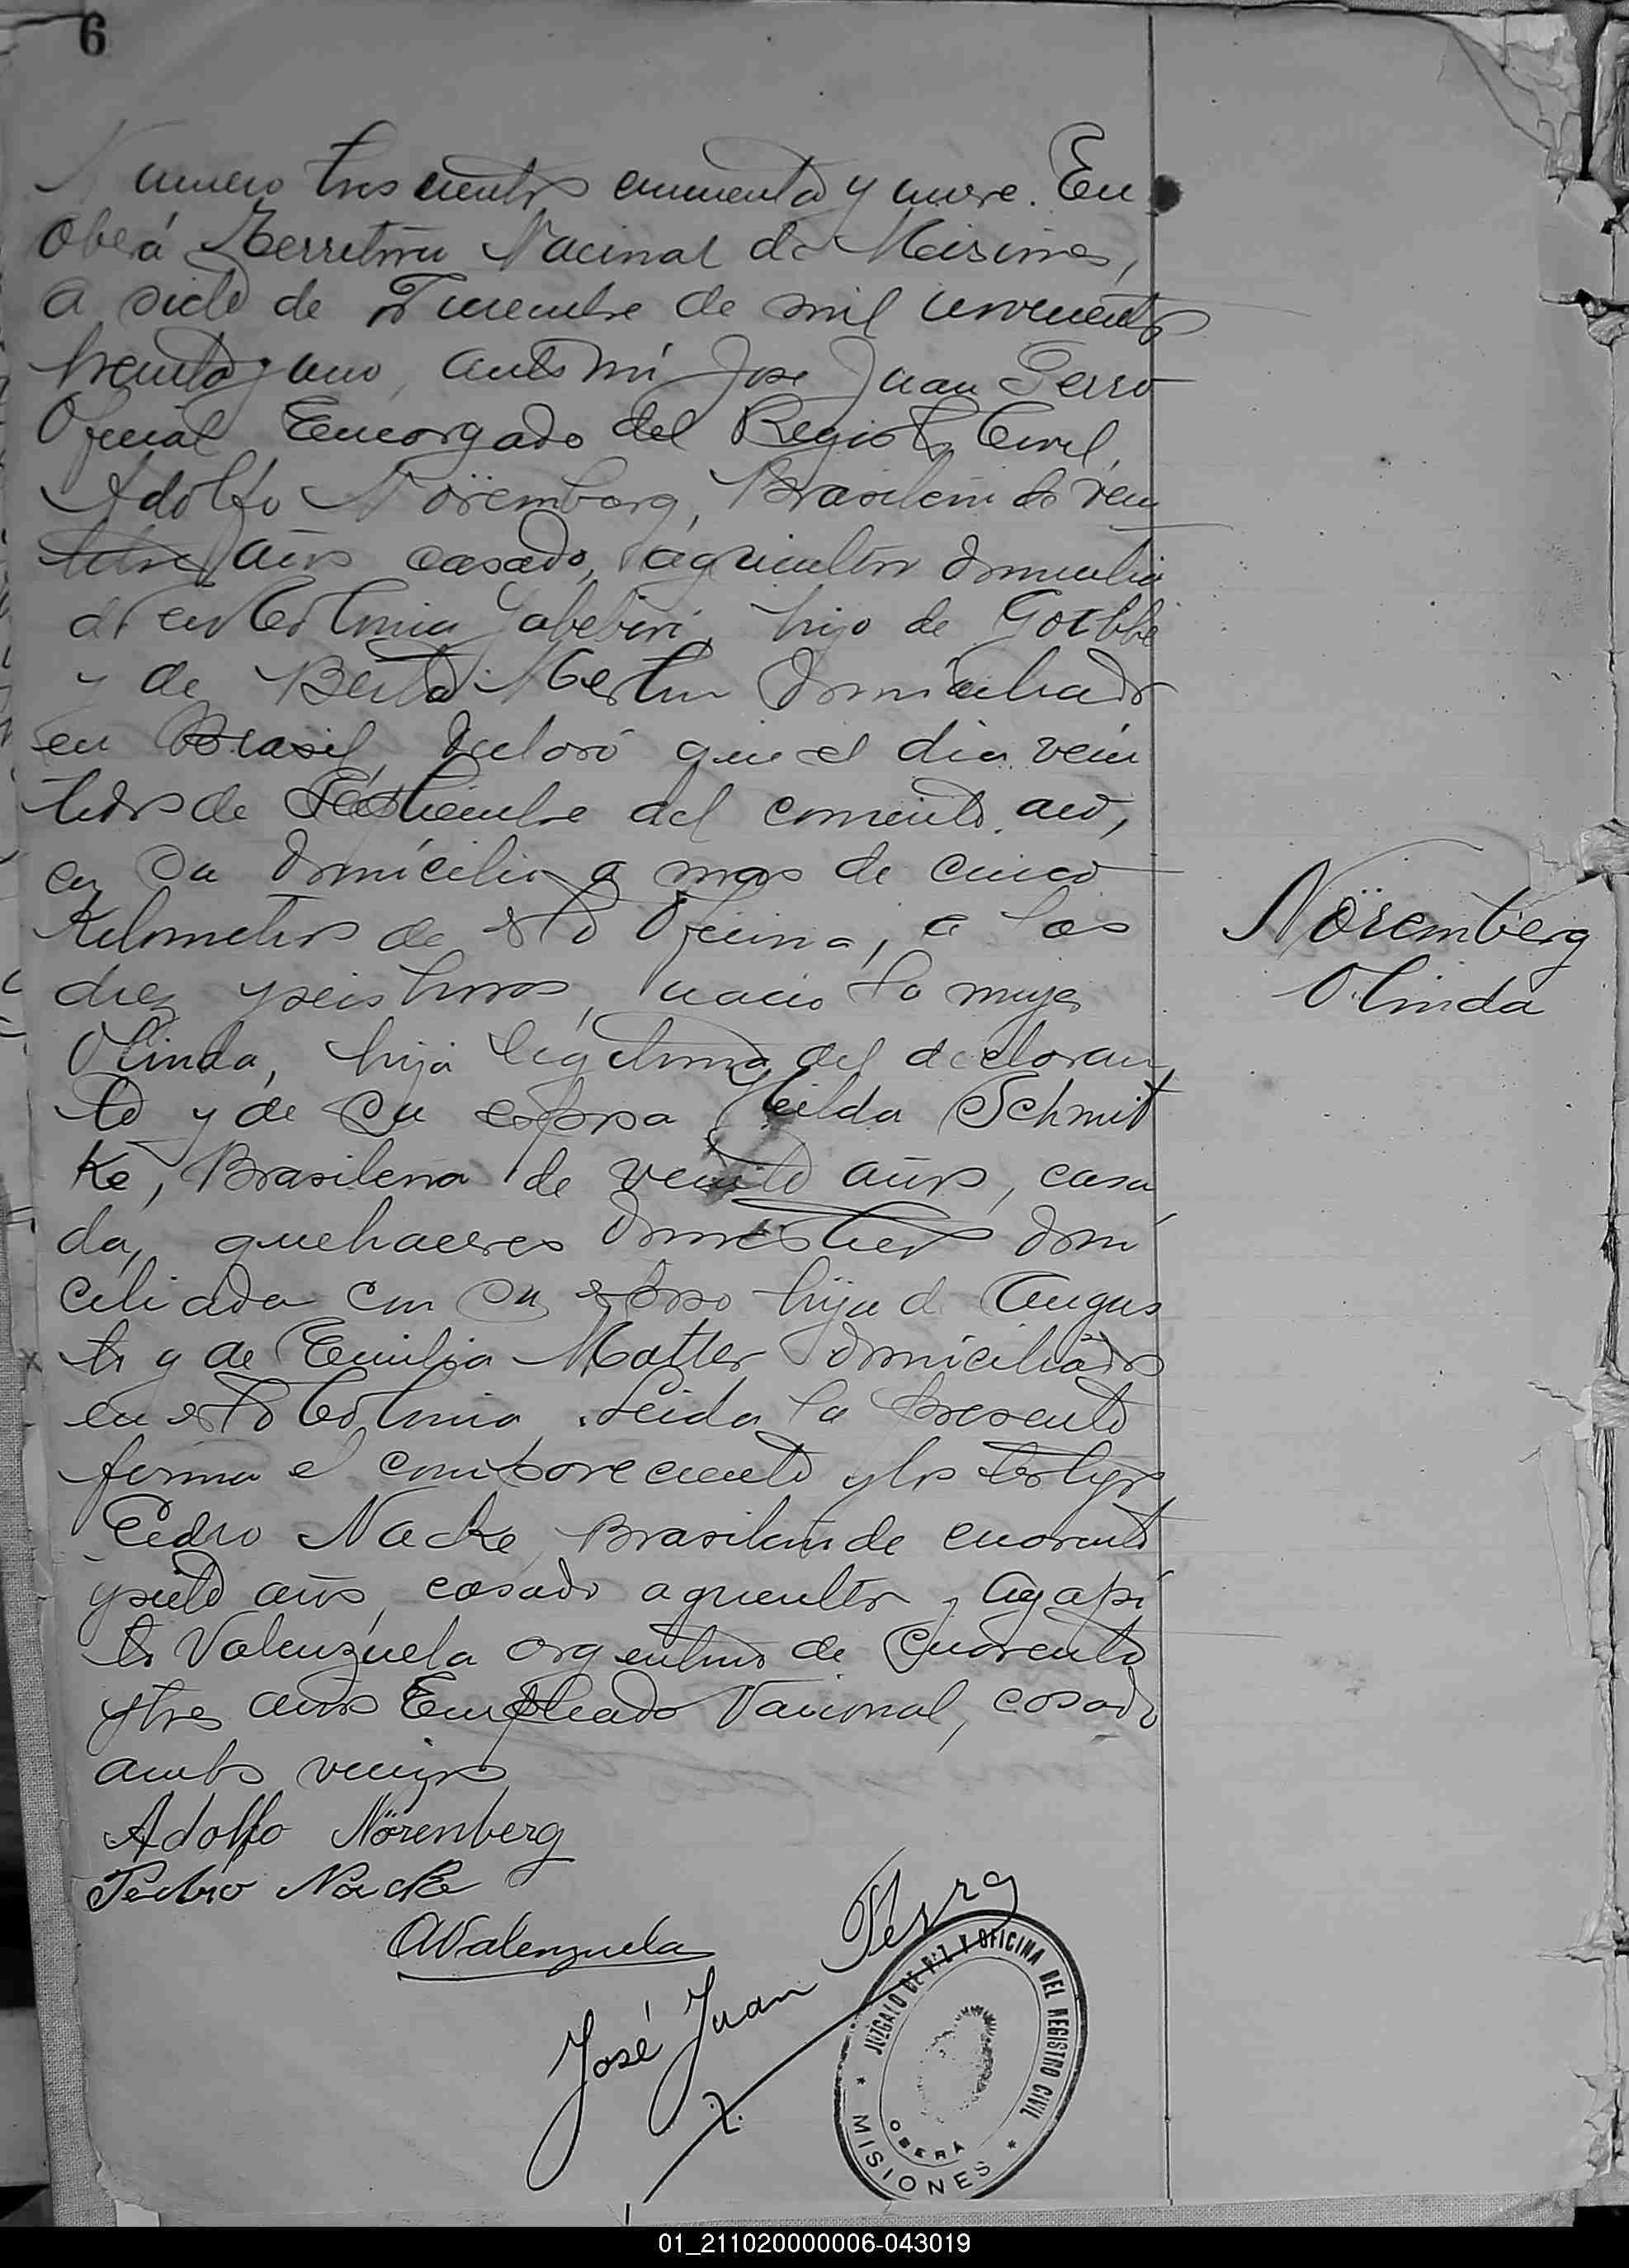 6
Numero trescientos cincuenta y nueve. En
Oberá Territorio Nacional de Misiones,
a siete de Diciembre de mil novecientos
treinta y uno, ante mi Jose Juan Serro
Oficial Encargado del Registro Civil,
Adolfo Nöremberg, Brasileño de vein
años casado, agricultor domicilia
do en Colonia Yabebirí, hijo de
y de Berta domiciliados
en Brasil, declaró que el dia vein
tidos de Septiembre del corriente año,
en su domicilio a mas de cinco
Kilometros de esta Oficina, a las
diez y seis horas, nacio la mujer
Olinda, hija legitima del declaran
te y de su esposa Hilda Schmit
ke, Brasileña de veinte años, casa
da, quehaceres domesticos domi
ciliada con su esposo hija de Augus
to y de Emilia Matter domiciliados
en esta Colonia. Leida la presente
firma el compareciente y los testigos
Pedro Nacke, Brasileño de cuarenta
y siete años, casado agricultor y Agapi
to Valenzuela argentino de cuarenta
y tres años Empleado Nacional, casado
ambos vecinos
Nöremberg
Olinda
Adolfo Nörenberg
Pedro Nacke
AValenzuela
José Juan
JUZGADO DE PAZ Y OFICINA DEL REGISTRO CIVIL
OBERA
* MISIONES *
01_211020000006-043019